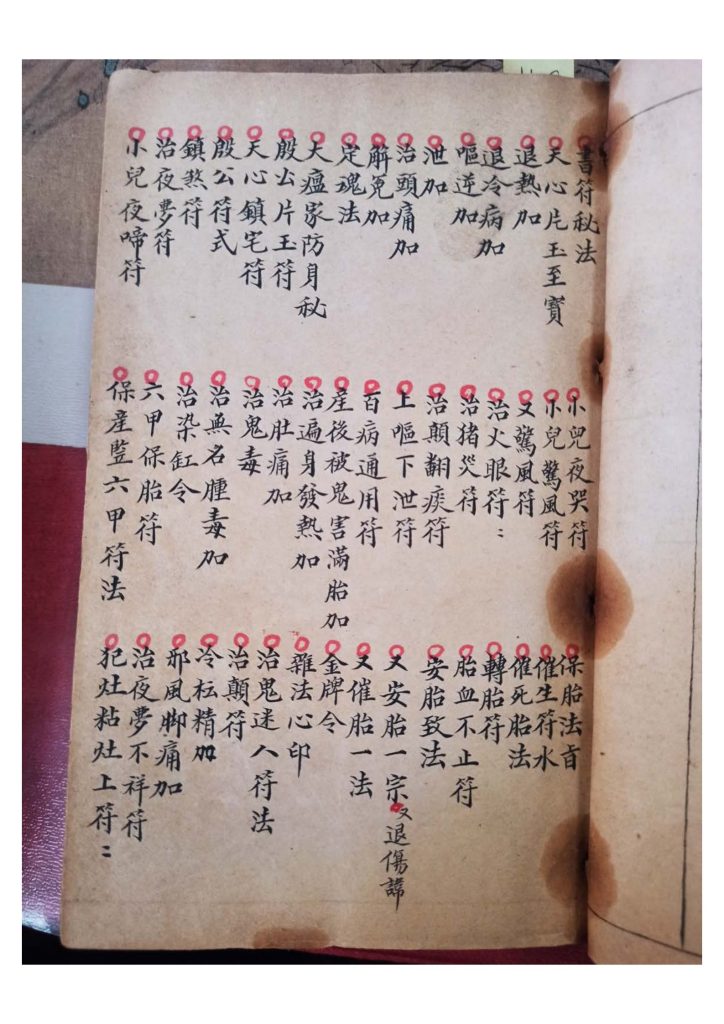 書符秘法
天心片玉至寶
退熱加
退冷病加
嘔逆加
泄加
治頭痛加
解冤加
定魂法
大瘟家防身秘
殷公片玉符
天心鎮宅符
殷公符式
鎮煞符
治夜夢符
小兒夜啼符
小兒夜哭符
小兒驚風符
又驚風符
治火眼符：
治猪災符
治顛翻疾符
上嘔下泄符
百病通用符
産後被鬼害滿胎加
治遍身發熱加
治肚痛加
治鬼毒
治無名腫毒加
治染缸令
六甲保胎符
保産監六甲符法
保胎法旨
催生符水
催死胎法
轉胎符
胎血不止符
安胎致法
又安胎一宗又退傷諱
又催胎一法
金牌令
雜法心印
治鬼迷人符法
治顛符
冷枟精加
邪風脚痛加
治夜夢不祥符
犯灶粘灶上符：